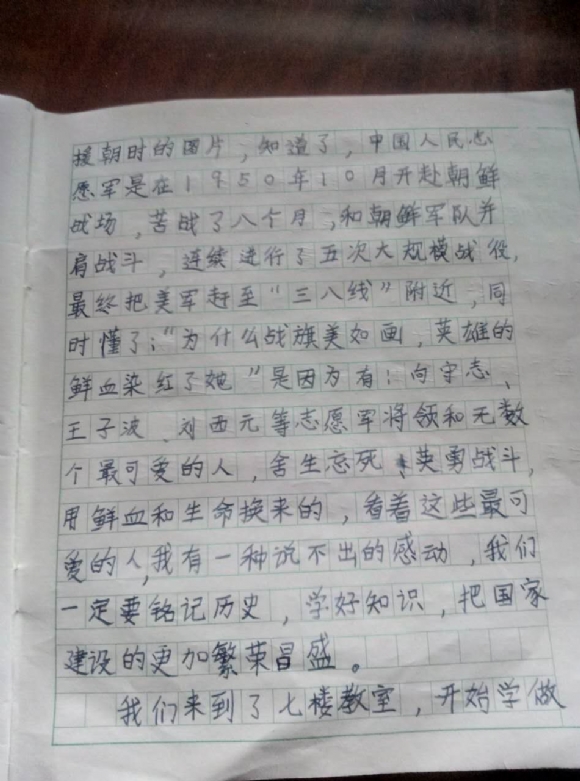 援朝时的图片，知道了，中国人民志
愿军是在1950年10月开赴朝鲜
战场，苦战了八个月，和朝鲜军队并
肩战斗，连续进行了五次大规模战役，
最终把美军赶至“三八线”附近，同
时懂了：“为什么战旗美如画，英雄的
鲜血染红了她”是因为有：向守志、
王子波、刘西元等志愿军将领和无数
个最可爱的人，舍生忘死、英勇战斗，
用鲜血和生命换来的，看着这些最可
爱的人，我有一种说不出的感动，我们
一定要铭记历史，学好知识，把国家
建设的更加繁荣昌盛。
我们来到了七楼教室，开始学做